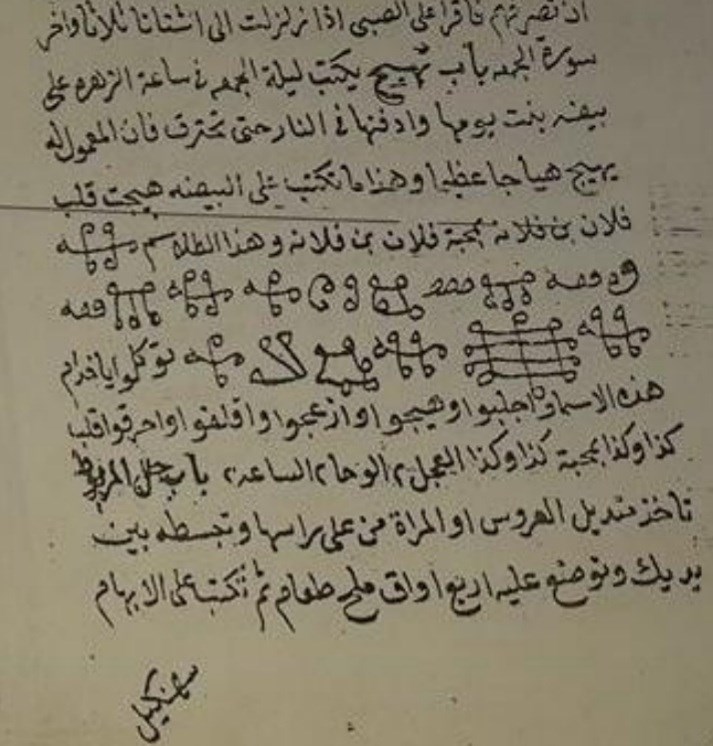 ان تصرتهم فاقرا على الصبي اذا زلزلت الى اشتاتا ثلاثا واخر
سورة الجمعه باب تهييج يكتب ليلة الجمعه في ساعة الزهره على
بيضه بنت يومها وادفنها في النار حتى تحترق فان المعمول له
يهيج هياجا عظيما وهذا ما تكتب على البيضه هيجت قلب
فلان بن فلانه بمحبة فلان بن فلانه وهذا الطلاسم
توكلوا يا خدام
هذه الاسماء واجلبوا وهيجوا وازعجوا واقلقوا واحرقوا قلب
كذا وكذا بمحبة كذا وكذا العجل ٢ الوحا ٢ الساعه ٢ باب حل المربوط
تاخذ منديل العروس او المراة من على راسها وتبسطه بين
يديك وتوضع عليه اربع اواق ملح طعام ثم تكتب على الابهام